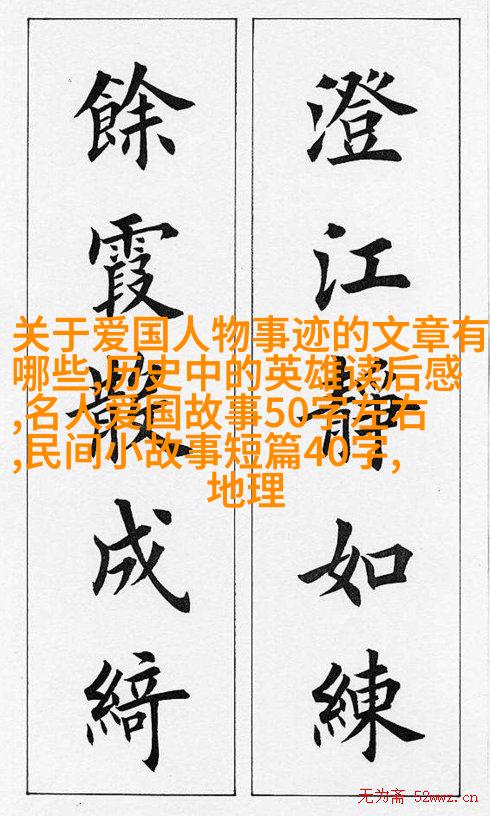 澄江靜如練
餘霞散成綺
关于爱国人物事迹的文章有
哪些,历史中的英雄读后感
,名人爱国故事50字左右
,民间小故事短篇40字,
地理
无为斋 52wwz.cn